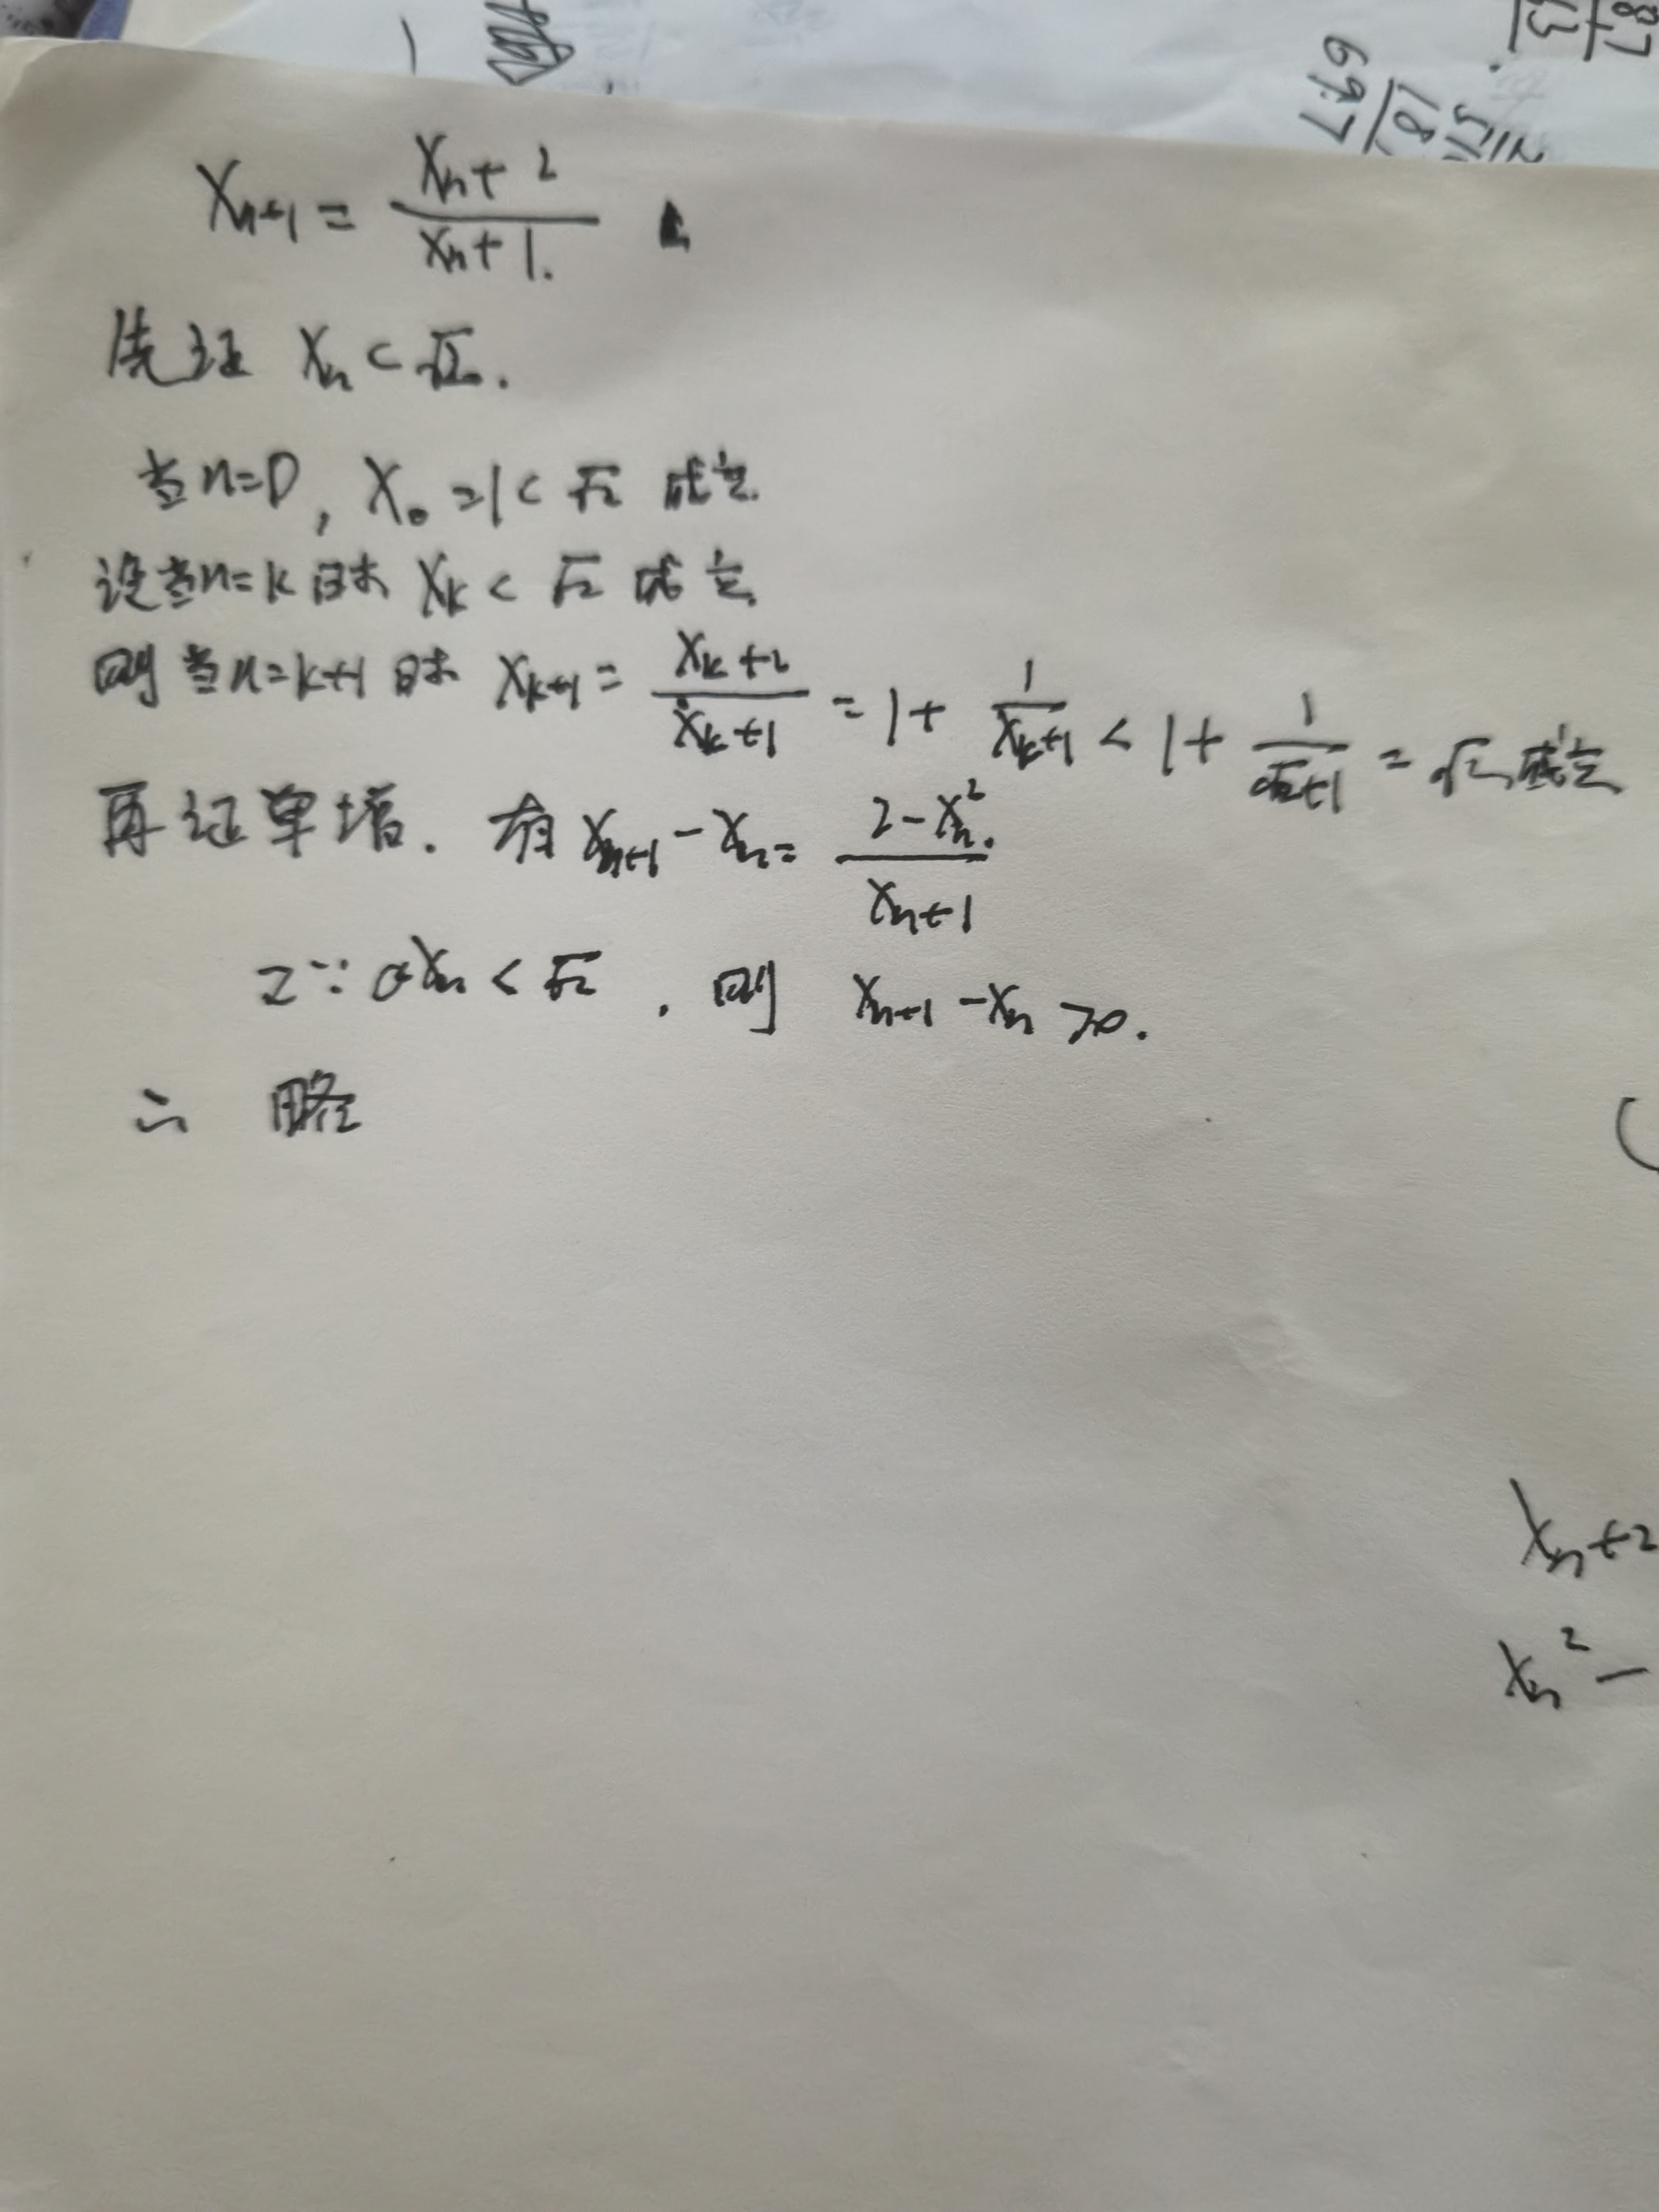 x_{n+1} = \frac{x_n+2}{x_n+1}.
先证 x_n < √2.
当n=0, x_0 =1< √2 成立.
设当n=k时 x_k < √2 成立.
则当n=k+1时 x_{k+1} = \frac{x_k+2}{x_k+1} = 1+ \frac{1}{x_k+1} < 1+ \frac{1}{√2+1} = √2 成立
再证单增. 有 x_{n+1} - x_n = \frac{2-x_n^2}{x_n+1}
又∵ 0<x_n < √2 , 则 x_{n+1} - x_n >0.
∴ 略
x_n+2
x_n^2 -